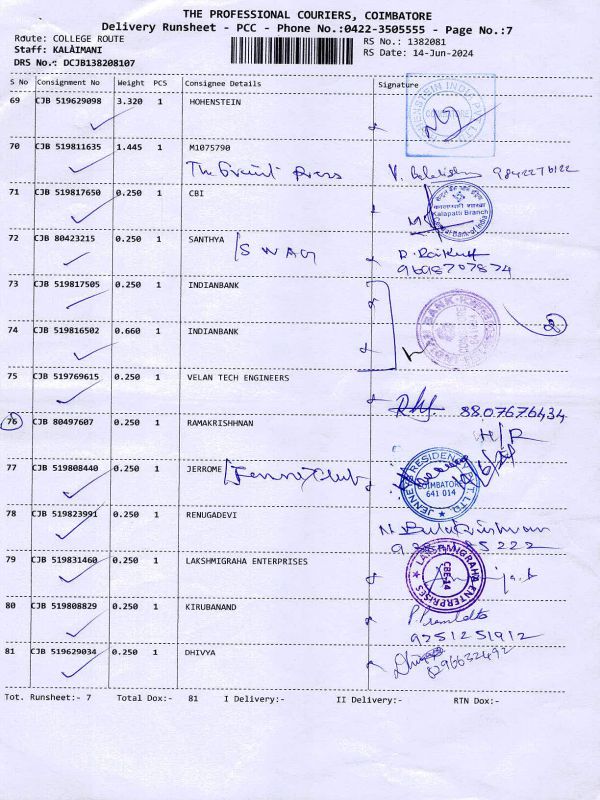 THE PROFESSIONAL COURIERS, COIMBATORE
Delivery Runsheet - PCC - Phone No.:0422-3505555 - Page No.:7
Route: COLLEGE ROUTE
RS No.: 1382081
Staff: KALAIMANI
RS Date: 14-Jun-2024
DRS No.: DCJB138208107
S No Consignment No Weight PCS Consignee Details Signature
69 CJB 519629098 3.320 1 HOHENSTEIN
70 CJB 519811635 1.445 1 M1075790
The Grauit Press
9842276122
71 CJB 519817650 0.250 1 CBI
Kalapatti Branch
Central Bank of India
72 CJB 80423215 0.250 1 SANTHYA / SWAG
9698707874
73 CJB 519817505 0.250 1 INDIANBANK
2
74 CJB 519816502 0.660 1 INDIANBANK
75 CJB 519769615 0.250 1 VELAN TECH ENGINEERS
8807676434
76 CJB 80497607 0.250 1 RAMAKRISHHNAN
H/R
77 CJB 519808440 0.250 1 JERROME / Jenne Club
JENNEYS RESIDENCY PVT. LTD.
COIMBATORE
641 014
78 CJB 519823991 0.250 1 RENUGADEVI
79 CJB 519831460 0.250 1 LAKSHMIGRAHA ENTERPRISES
LAKSHMIGRAHA ENTERPRISES
CBE-14
80 CJB 519808829 0.250 1 KIRUBANAND
9251251912
81 CJB 519629034 0.250 1 DHIVYA
8296632492
Tot. Runsheet:- 7 Total Dox:- 81 I Delivery:- II Delivery:- RTN Dox:-